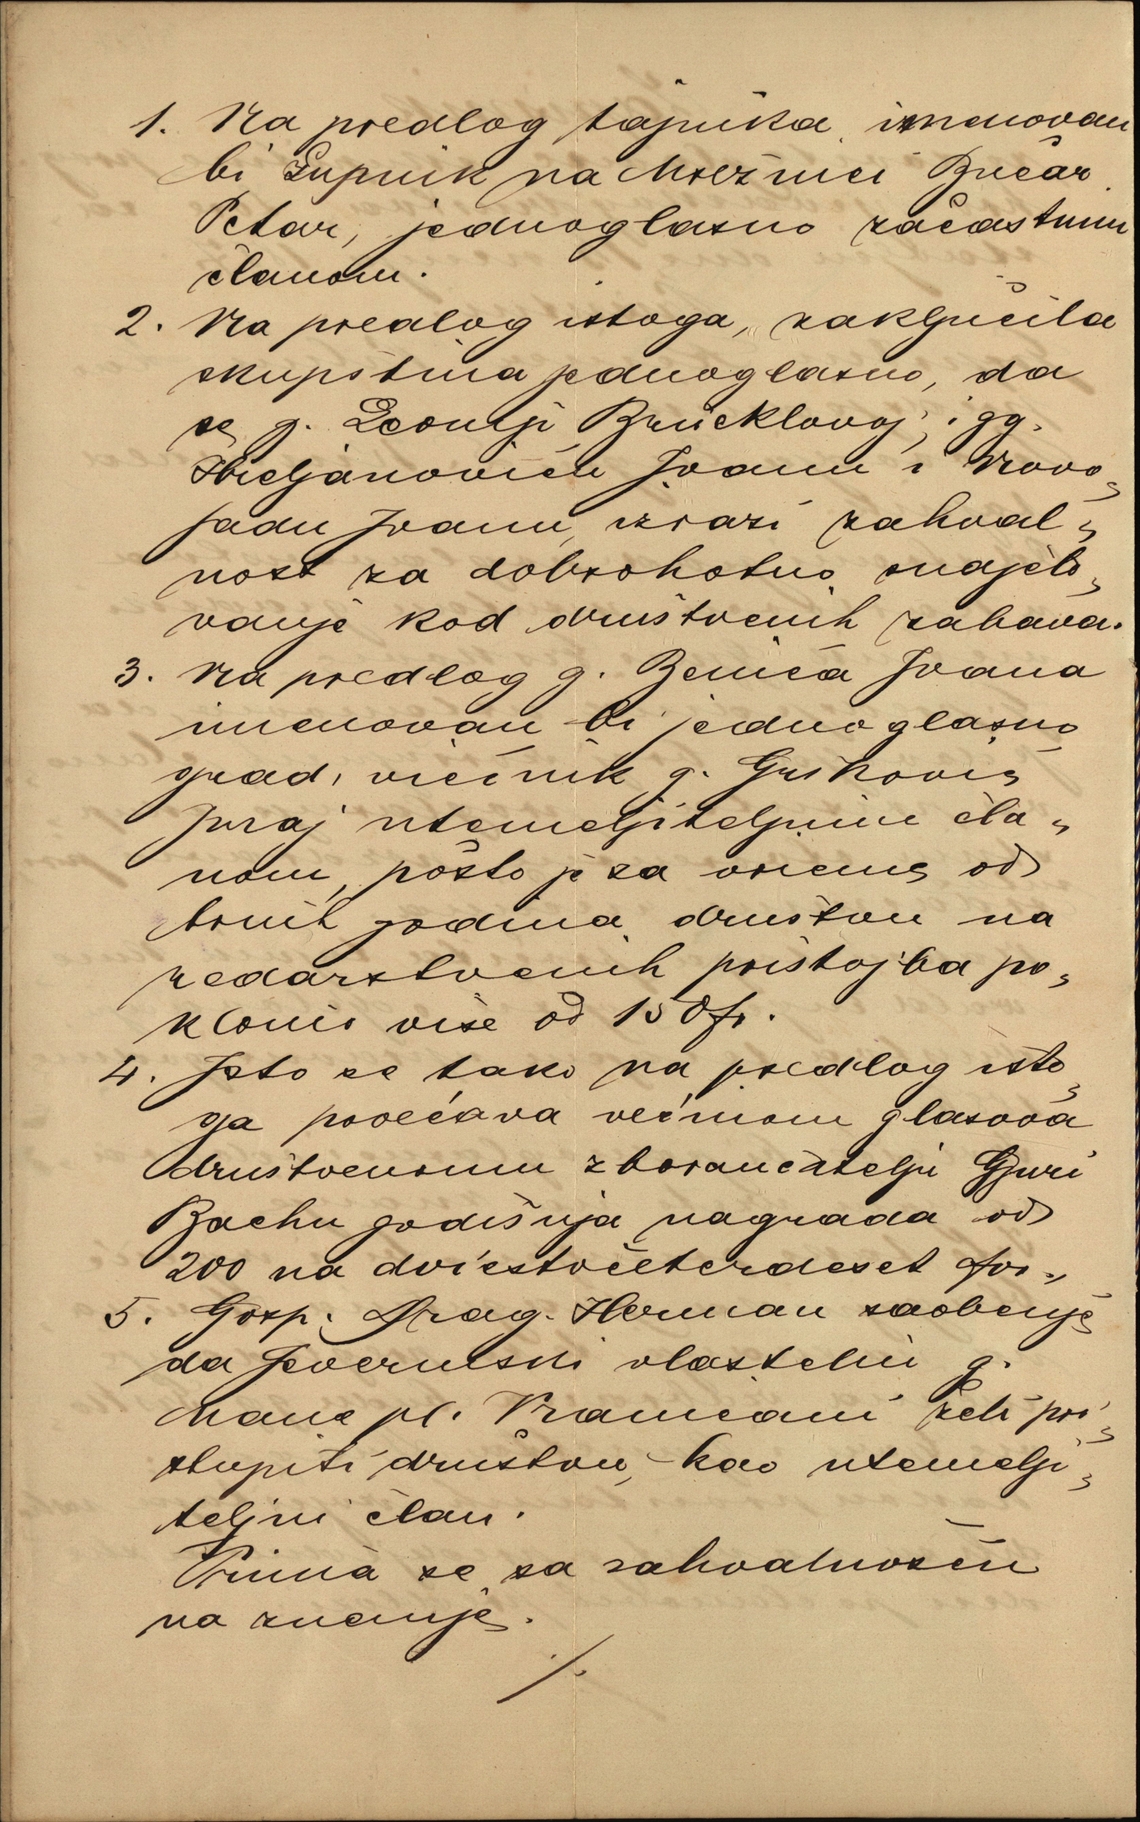 1. Na predlog tajnika imenovan
bi župnik na Mrežnici Bučar
Petar, jednoglasno začastnim
članom.
2. Na predlog istoga, zaključila
skupština jednoglasno, da
se g. Leontji Brücklovoj, i gg.
Hreljanoviću Ivanu i Novo„
sadu Ivanu izrazi zahval„
nost za dobrohotno sudjelo„
vanje kod društvenih zabava.
3. Na predlog g. Benića Ivana
imenovan bi jednoglasno
grad. viećnik g. Gršković
Juraj utemeljiteljnim čla„
nom, pošto je za vrieme od
trih godina društvu na
redarstvenih pristojba po„
klonio više od 150 fr.
4. Isto se tako na predlog isto„
ga povećava većinom glasova
društvenomu zboraučitelju Gjuri
Bachu godišnja nagrada od
200 na dviestočeterdeset for.„
5. Gosp. Drag. Herman saobćuje
da Severinski vlastelin g.
Mane pl. Vranicani želi pri„
stupiti društvu, kao utemelji„
teljni član.
Prima se sa zahvalnošću
na znanje.
./.